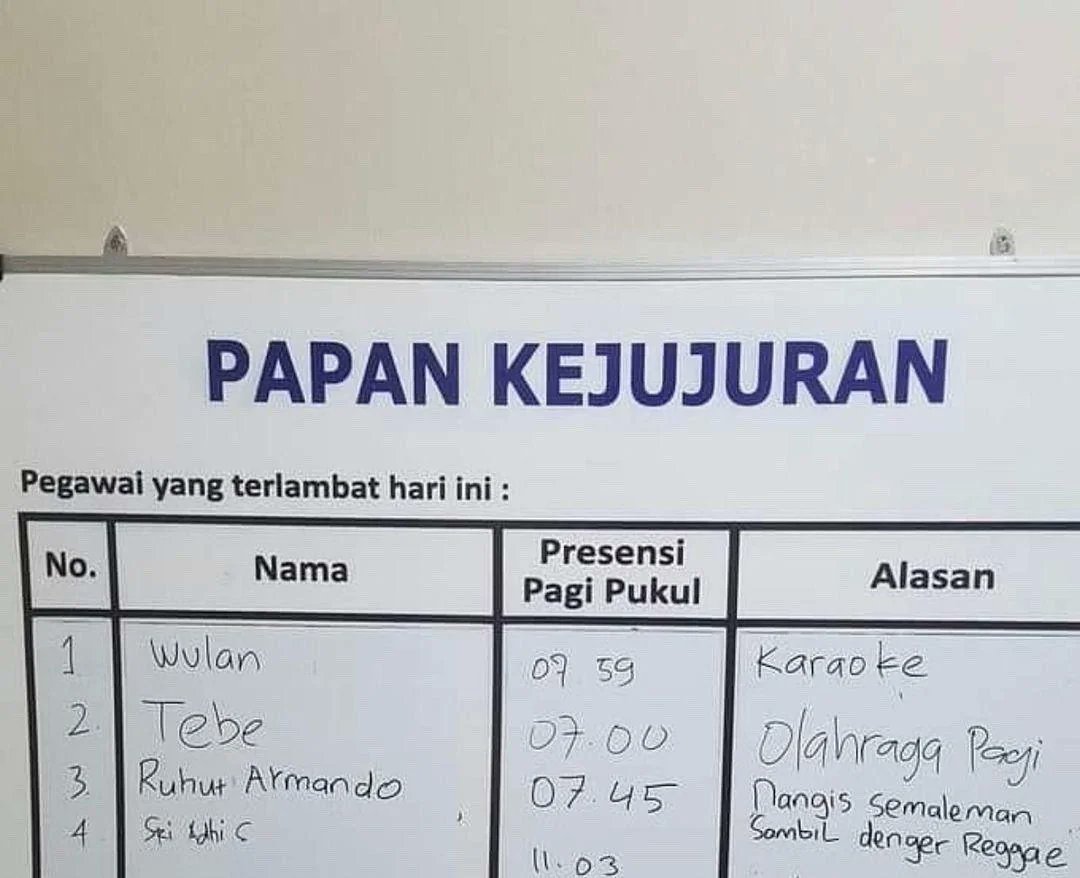 PAPAN KEJUJURAN
Pegawai yang terlambat hari ini :
No. Nama Presensi Pagi Pukul Alasan
1 Wulan 07.59 Karaoke
2. Tebe 07.00 Olahraga Pagi
3. Ruhut Armando 07.45 Nangis semaleman
Sambil denger Reggae
4 Sri Adhi C 11.03